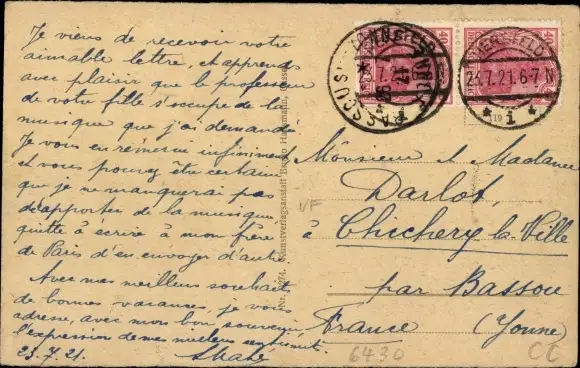 Je viens de recevoir votre
aimable lettre, et apprends
avec plaisir que le professeur
de votre fille s'occupe de la
musique que j'ai demandé.
Je vous en remercie infiniment
et vous pouvez être certaine
que je ne manquerai pas
d'apporter de la musique
quitte à écrire à mon frère
de Paris d'en envoyer d'autre
Avec mes meilleurs souhaits
de bonnes vacances, je vous
adresse, avec mon bon souvenir
l'expression de mes meilleurs sentiments.
23.7.21.
Monsieur et Madame
Darlot,
à Chichery la Ville
par Bassou
France (Yonne)
VF
6430
CC
HERSFELD
24.7.21.6-7 N
* i *
40
40
Kunstverlagsanstalt Bruno Hansmann, Cassel
Nr.